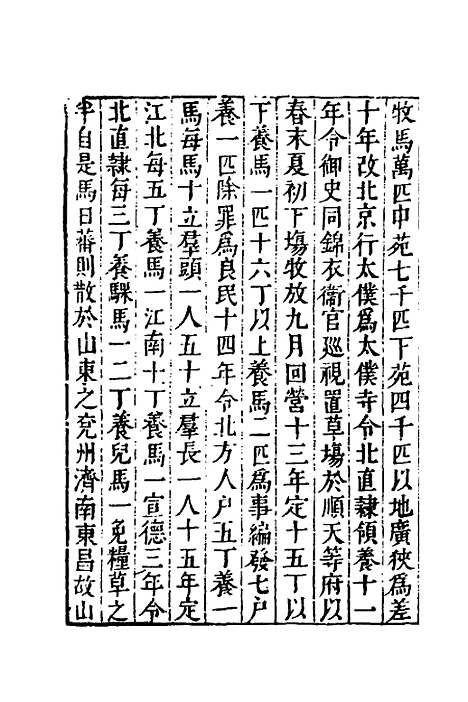 牧馬萬匹中苑七千匹下苑四千匹以地廣狹爲差
十年改北京行太僕爲太僕寺令北直隷領養十一
年令御史同錦衣衞官廵視置草塲於順天等府以
春末夏初下塲牧放九月回營十三年定十五丁以
下養馬一匹十六丁以上養馬二匹爲事編發七户
養一匹除罪爲良民十四年令北方人户五丁養一
馬每馬十立羣頭一人五十立羣長一人十五年定
江北每五丁養馬一江南十丁養馬一宣德三年令
北直隷每三丁養騍馬一二丁養兒馬一免糧草之
半自是馬日蕃則散於山東之兖州濟南東昌故山